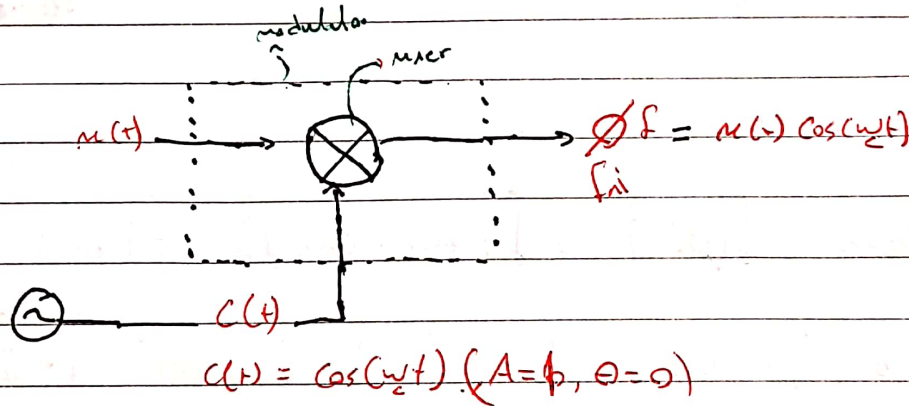 modulator
mixer
m(t)
Øf = m(t) cos(ωct)
fni
~
C(t)
C(t) = cos(ωct) (A=1, θ=0)